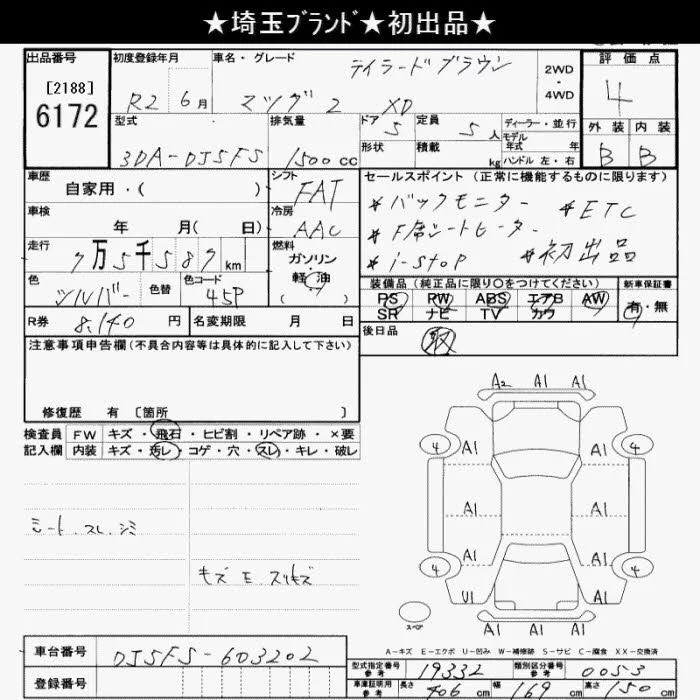 ★埼玉ﾌﾞﾗﾝﾄﾞ★初出品★
出品番号 初度登録年月 車名・グレード テイラードブラウン 2WD ・ 4WD 評価点
[2188] 6172 R2 6月 マツダ2 XD 4
型式 排気量 ドア 5 定員 5人 ディーラー・並行 外装 内装
モデル年式 年
3DA-DJ5FS 1500cc 形状 積載 kg ハンドル 左・右 B B
車歴 自家用・( ) シフト FAT セールスポイント (正常に機能するものに限ります)
車検 年 月( 日) 冷房 AAC *バックモニター *ETC
*F席シートヒーター
走行 7万5千587km 燃料 ガソリン 軽油 *i-stop *初出品
色 シルバー 色替 色コード 45P 装備品(純正品に限り○をつけてください) 新車保証書
PS PW ABS エアB AW 有・無
SR ナビ TV カワ
R券 8,140円 名変期限 月 日 後日品 取
注意事項申告欄(不具合内容等は具体的に記入して下さい)
修復歴 有 〔箇所 〕
検査員 FW キズ・飛石・ヒビ割・リペア跡・×要
記入欄 内装 キズ・汚レ・コゲ・穴・スレ・キレ・破レ
シート.スレ.シミ
キズ E スリキズ
A2 A1 A1
4 A1 A1 4
A1 A1
A1 A1
4 4
U1 A1
A1 A1 A1
スペア
A-キズ E-エクボ U-凹み W-補修跡 S-サビ C-腐食 XX-交換済
車台番号 DJ5FS-603202
型式指定番号 参考 19332 類別区分番号 参考 0053
登録番号
車庫証明用 参考 長さ 406cm 幅 169cm 高さ 150cm